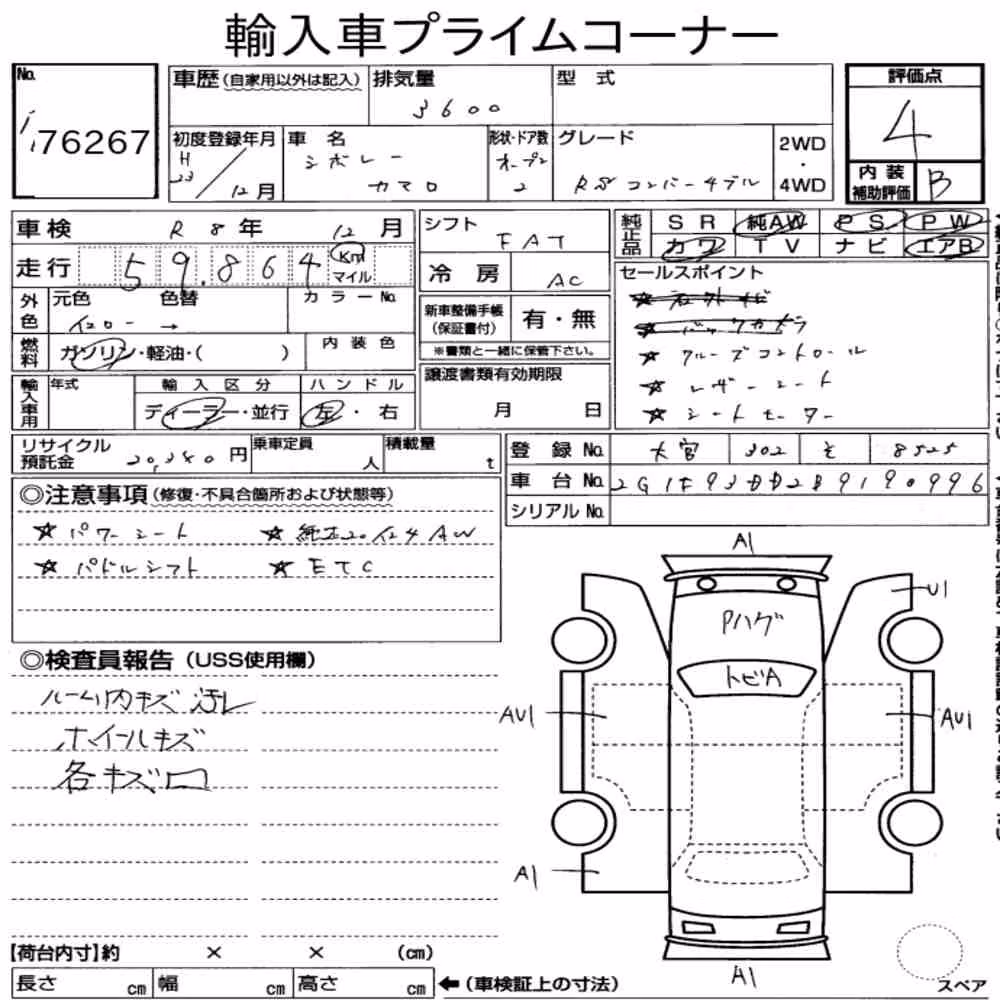 輸入車プライムコーナー
No.
76267
車歴(自家用以外は記入)
排気量
3600
型式
評価点
4
初度登録年月
H
23/12月
車名
シボレー
カマロ
形状・ドア数
オープン
2
グレード
RSコンバーチブル
2WD
・
4WD
内装
補助評価
B
車検 R8年 12月
走行 59.864 Km マイル
シフト
FAT
冷房
AC
純正品
SR 純AW PS PW
カワ TV ナビ エアB
外色
元色 色替
イエロー →
カラーNo.
燃料
ガソリン・軽油・( )
内装色
新車整備手帳
(保証書付)
有・無
※書類と一緒に保管下さい。
セールスポイント
☆ クルーズコントロール
☆ レザーシート
☆ シートヒーター
輸入車用
年式
輸入区分
ディーラー・並行
ハンドル
左・右
譲渡書類有効期限
月 日
リサイクル
預託金
円
乗車定員
人
積載量
t
登録No. 大宮 302 そ 8525
車台No.
シリアルNo.
◎注意事項(修復・不具合箇所および状態等)
☆ パワーシート
☆ 純正20インチAW
☆ パドルシフト
☆ ETC
◎検査員報告(USS使用欄)
ルーム内キズ 汚レ
ホイールキズ
各キズ
A1
U1
Pハゲ
トビA
AU1
AU1
A1
A1
スペア
【荷台内寸】約 × × (cm)
長さ cm 幅 cm 高さ cm ←(車検証上の寸法)